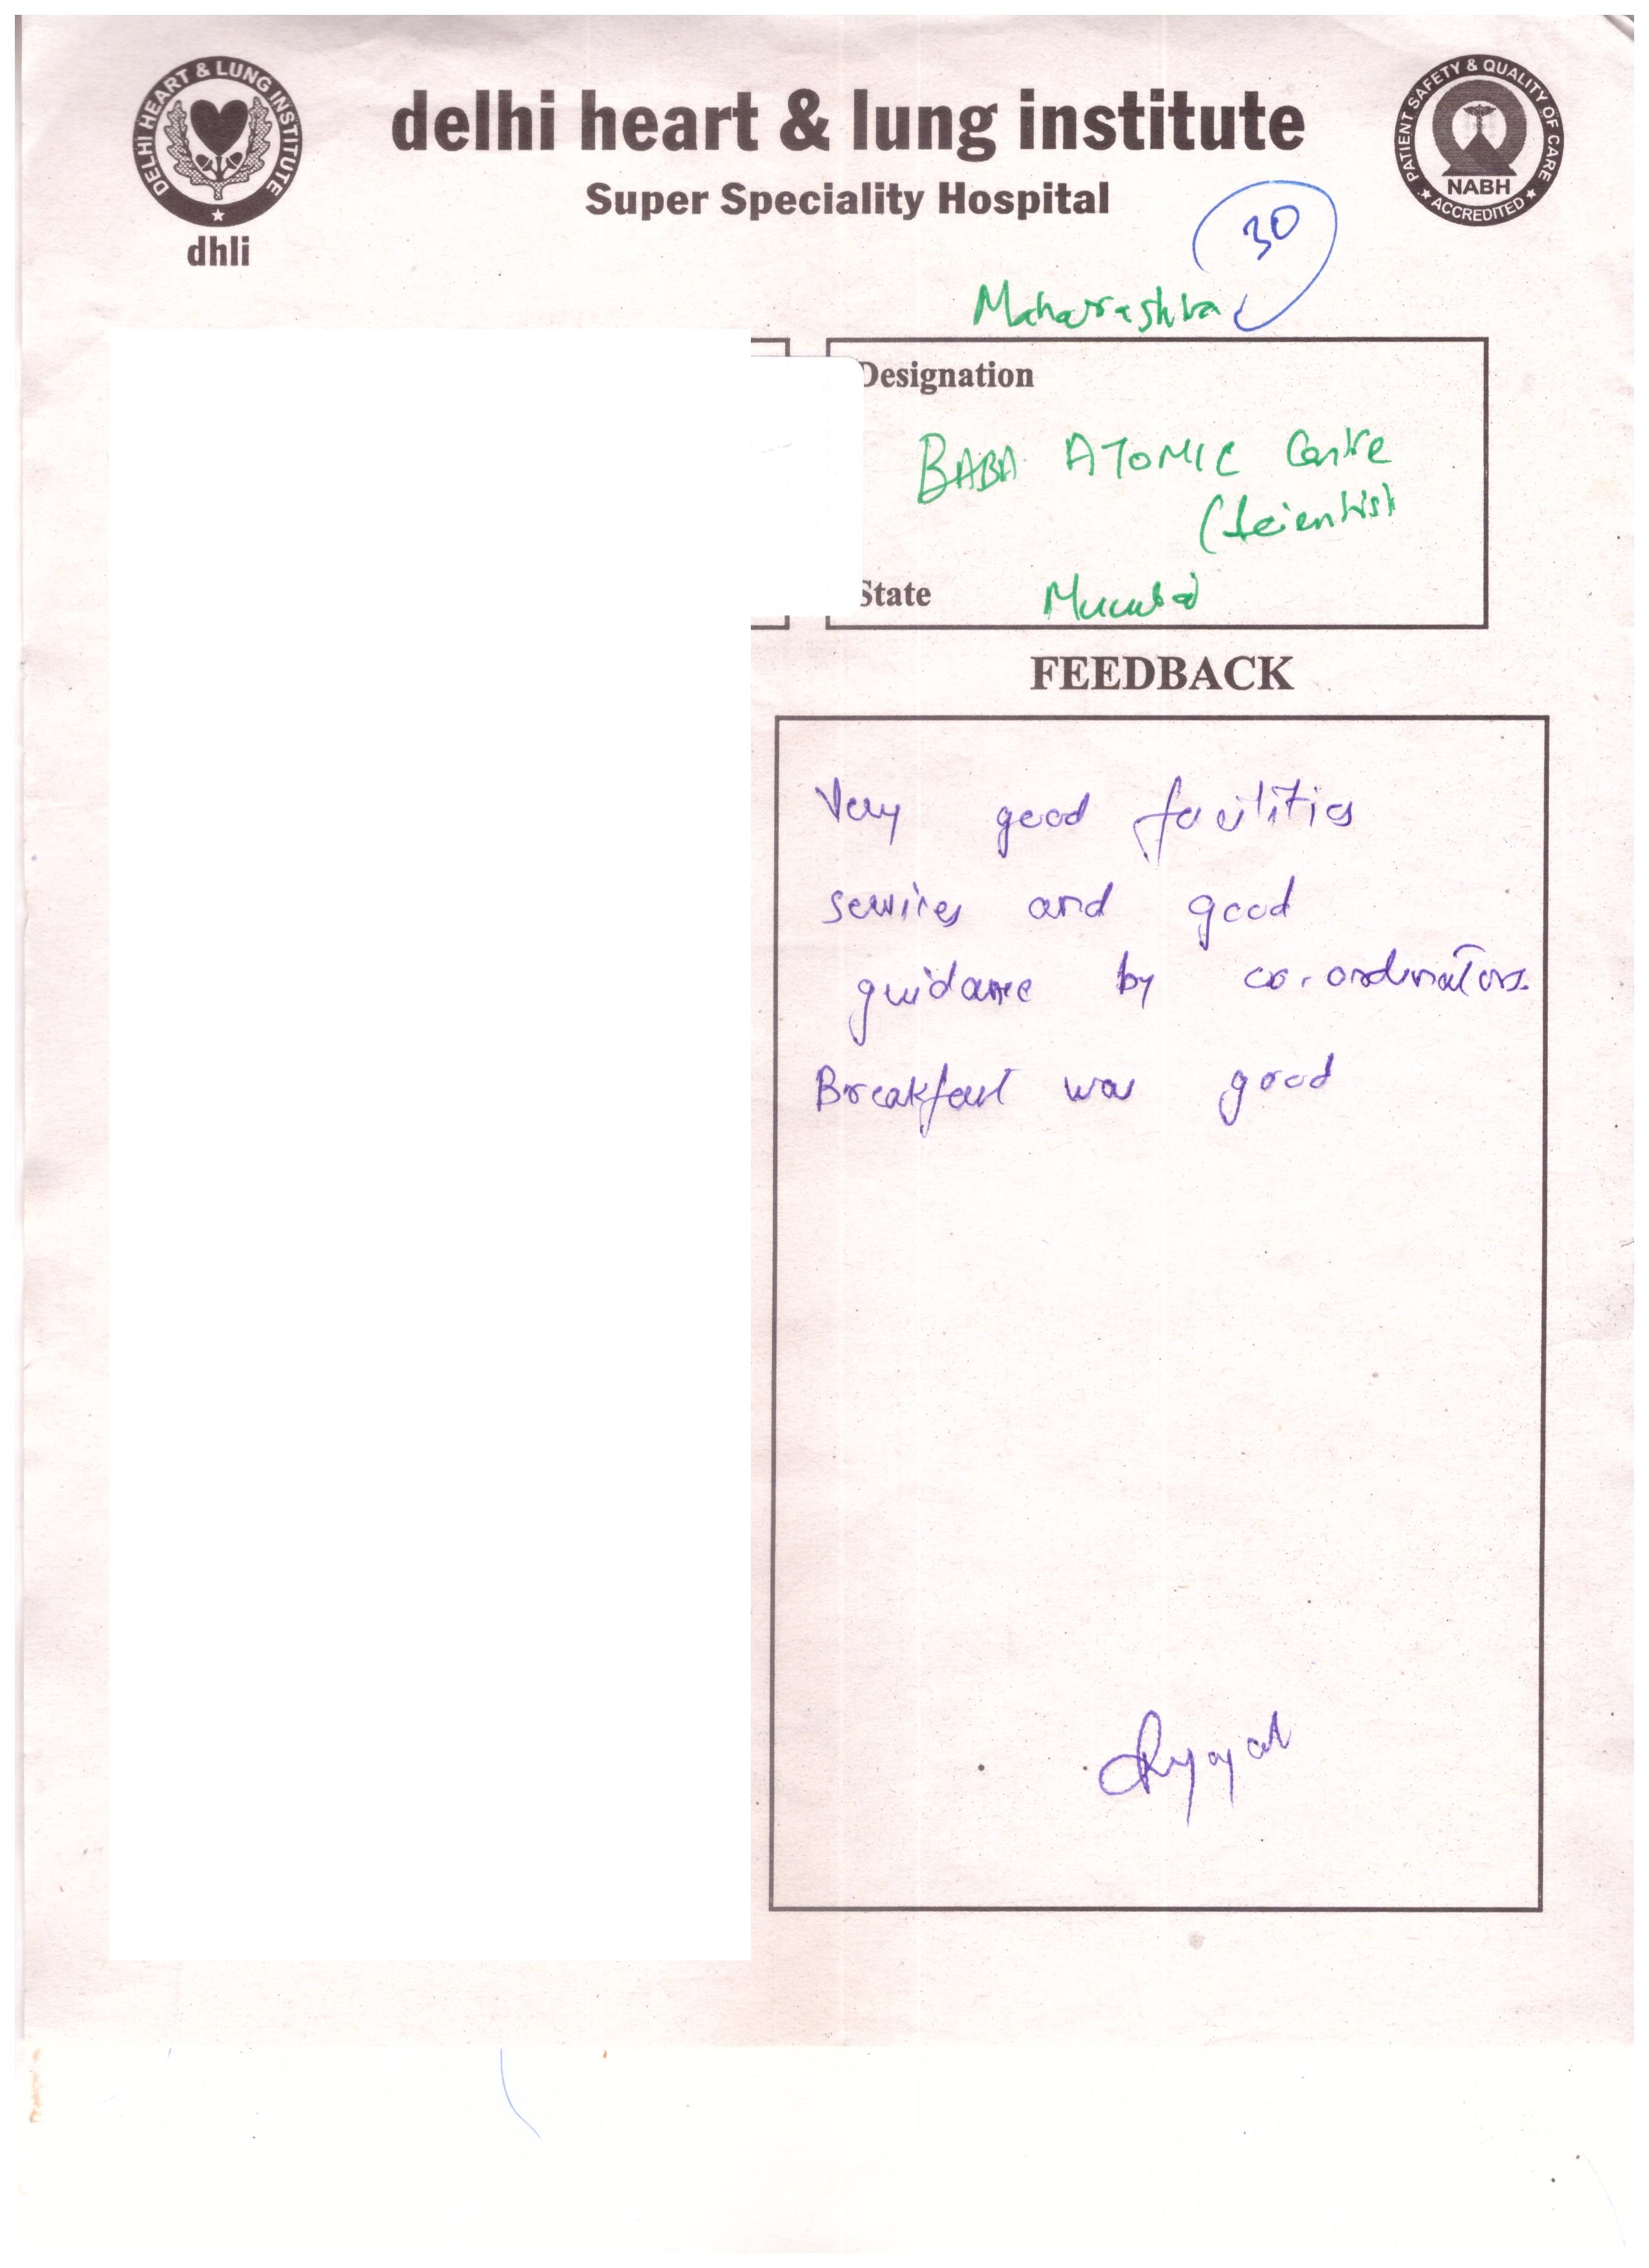 DELHI HEART & LUNG INSTITUTE
dhli
delhi heart & lung institute
Super Speciality Hospital
PATIENT SAFETY & QUALITY OF CARE
NABH
ACCREDITED
30
Maharashtra
Designation
BABA ATOMIC Centre
(Scientist
State Mumbai
FEEDBACK
Very good facilities
services and good
guidance by co-ordinators.
Breakfast was good